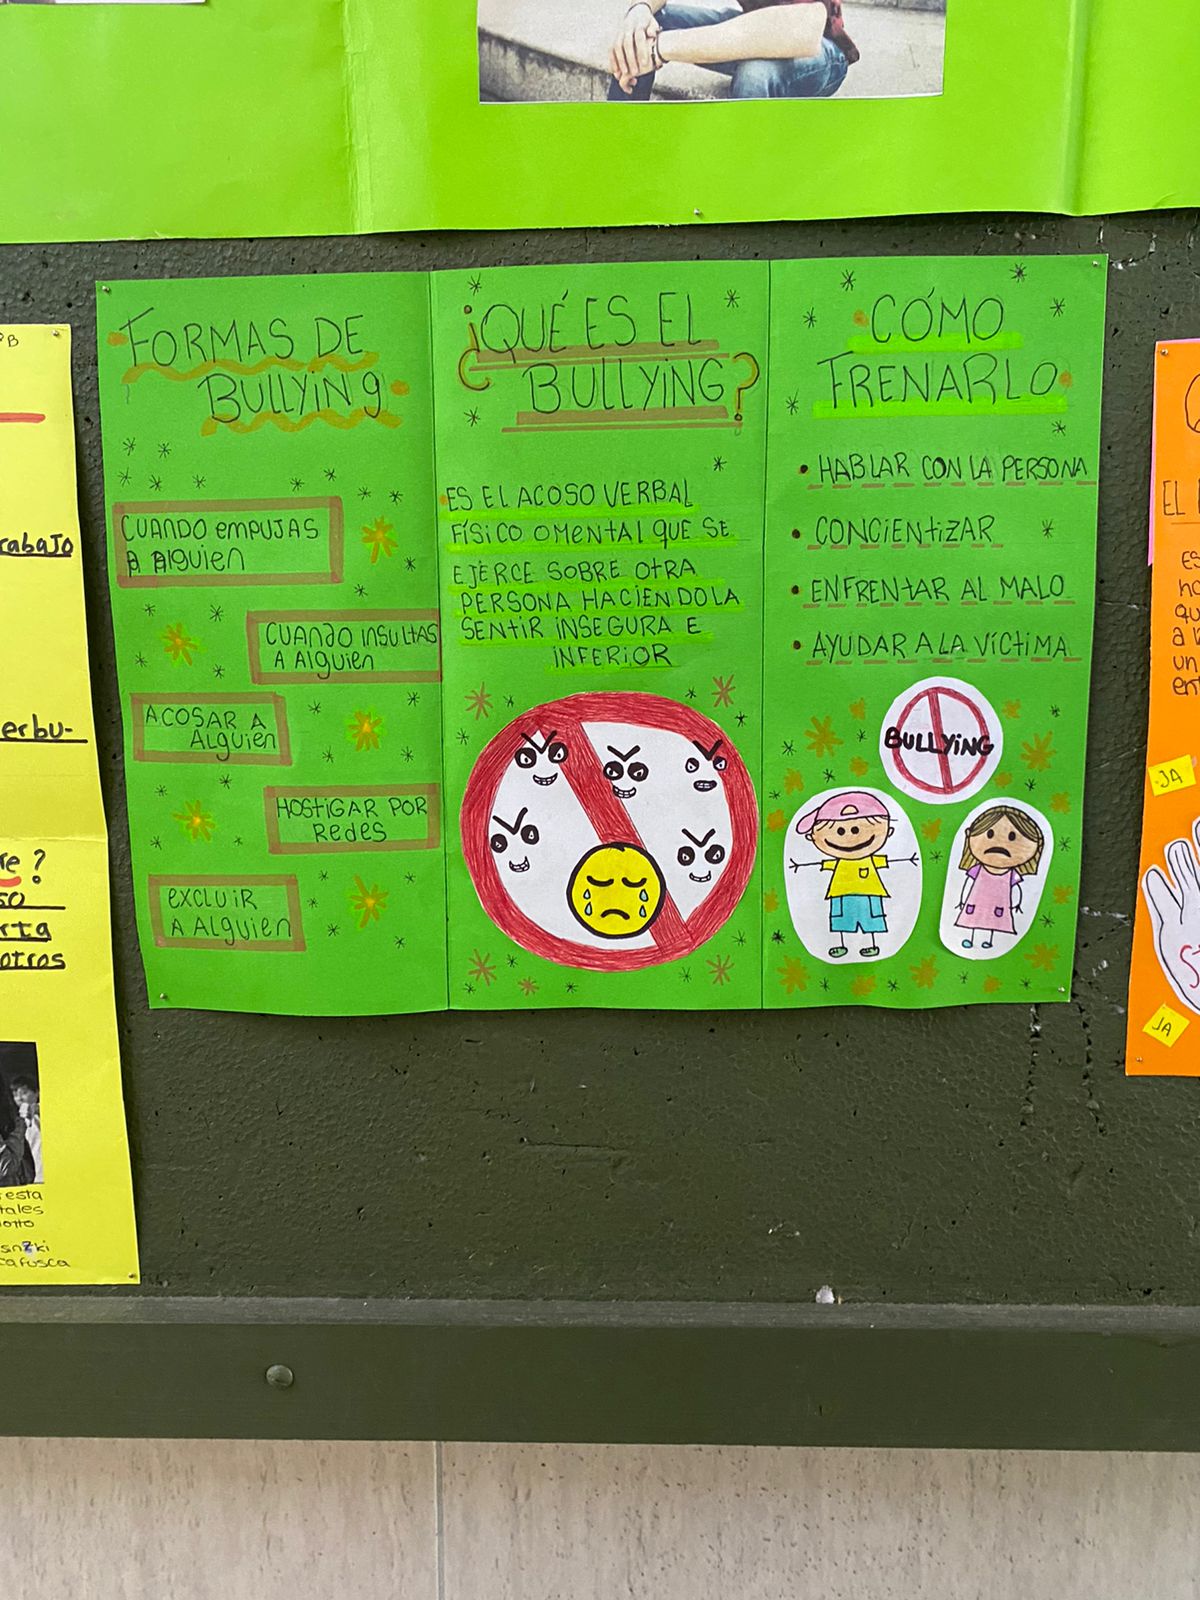 FORMAS DE
BULLYING
CUANDO EMPUJAS
A Alguien
CUANDO INSULTAS
A Alguien
ACOSAR A
Alguien
HOSTIGAR POR
REDES
EXCLUIR
A Alguien
¿QUÉ ES EL
BULLYING?
ES EL ACOSO VERBAL
FÍSICO O MENTAL QUE SE
EJERCE SOBRE OTRA
PERSONA HACIENDOLA
SENTIR INSEGURA E
INFERIOR
CÓMO
FRENARLO
• HABLAR CON LA PERSONA
• CONCIENTIZAR
• ENFRENTAR AL MALO
• AYUDAR A LA VÍCTIMA
BULLYING
erbu-
otros
esta
EL
JA
JA